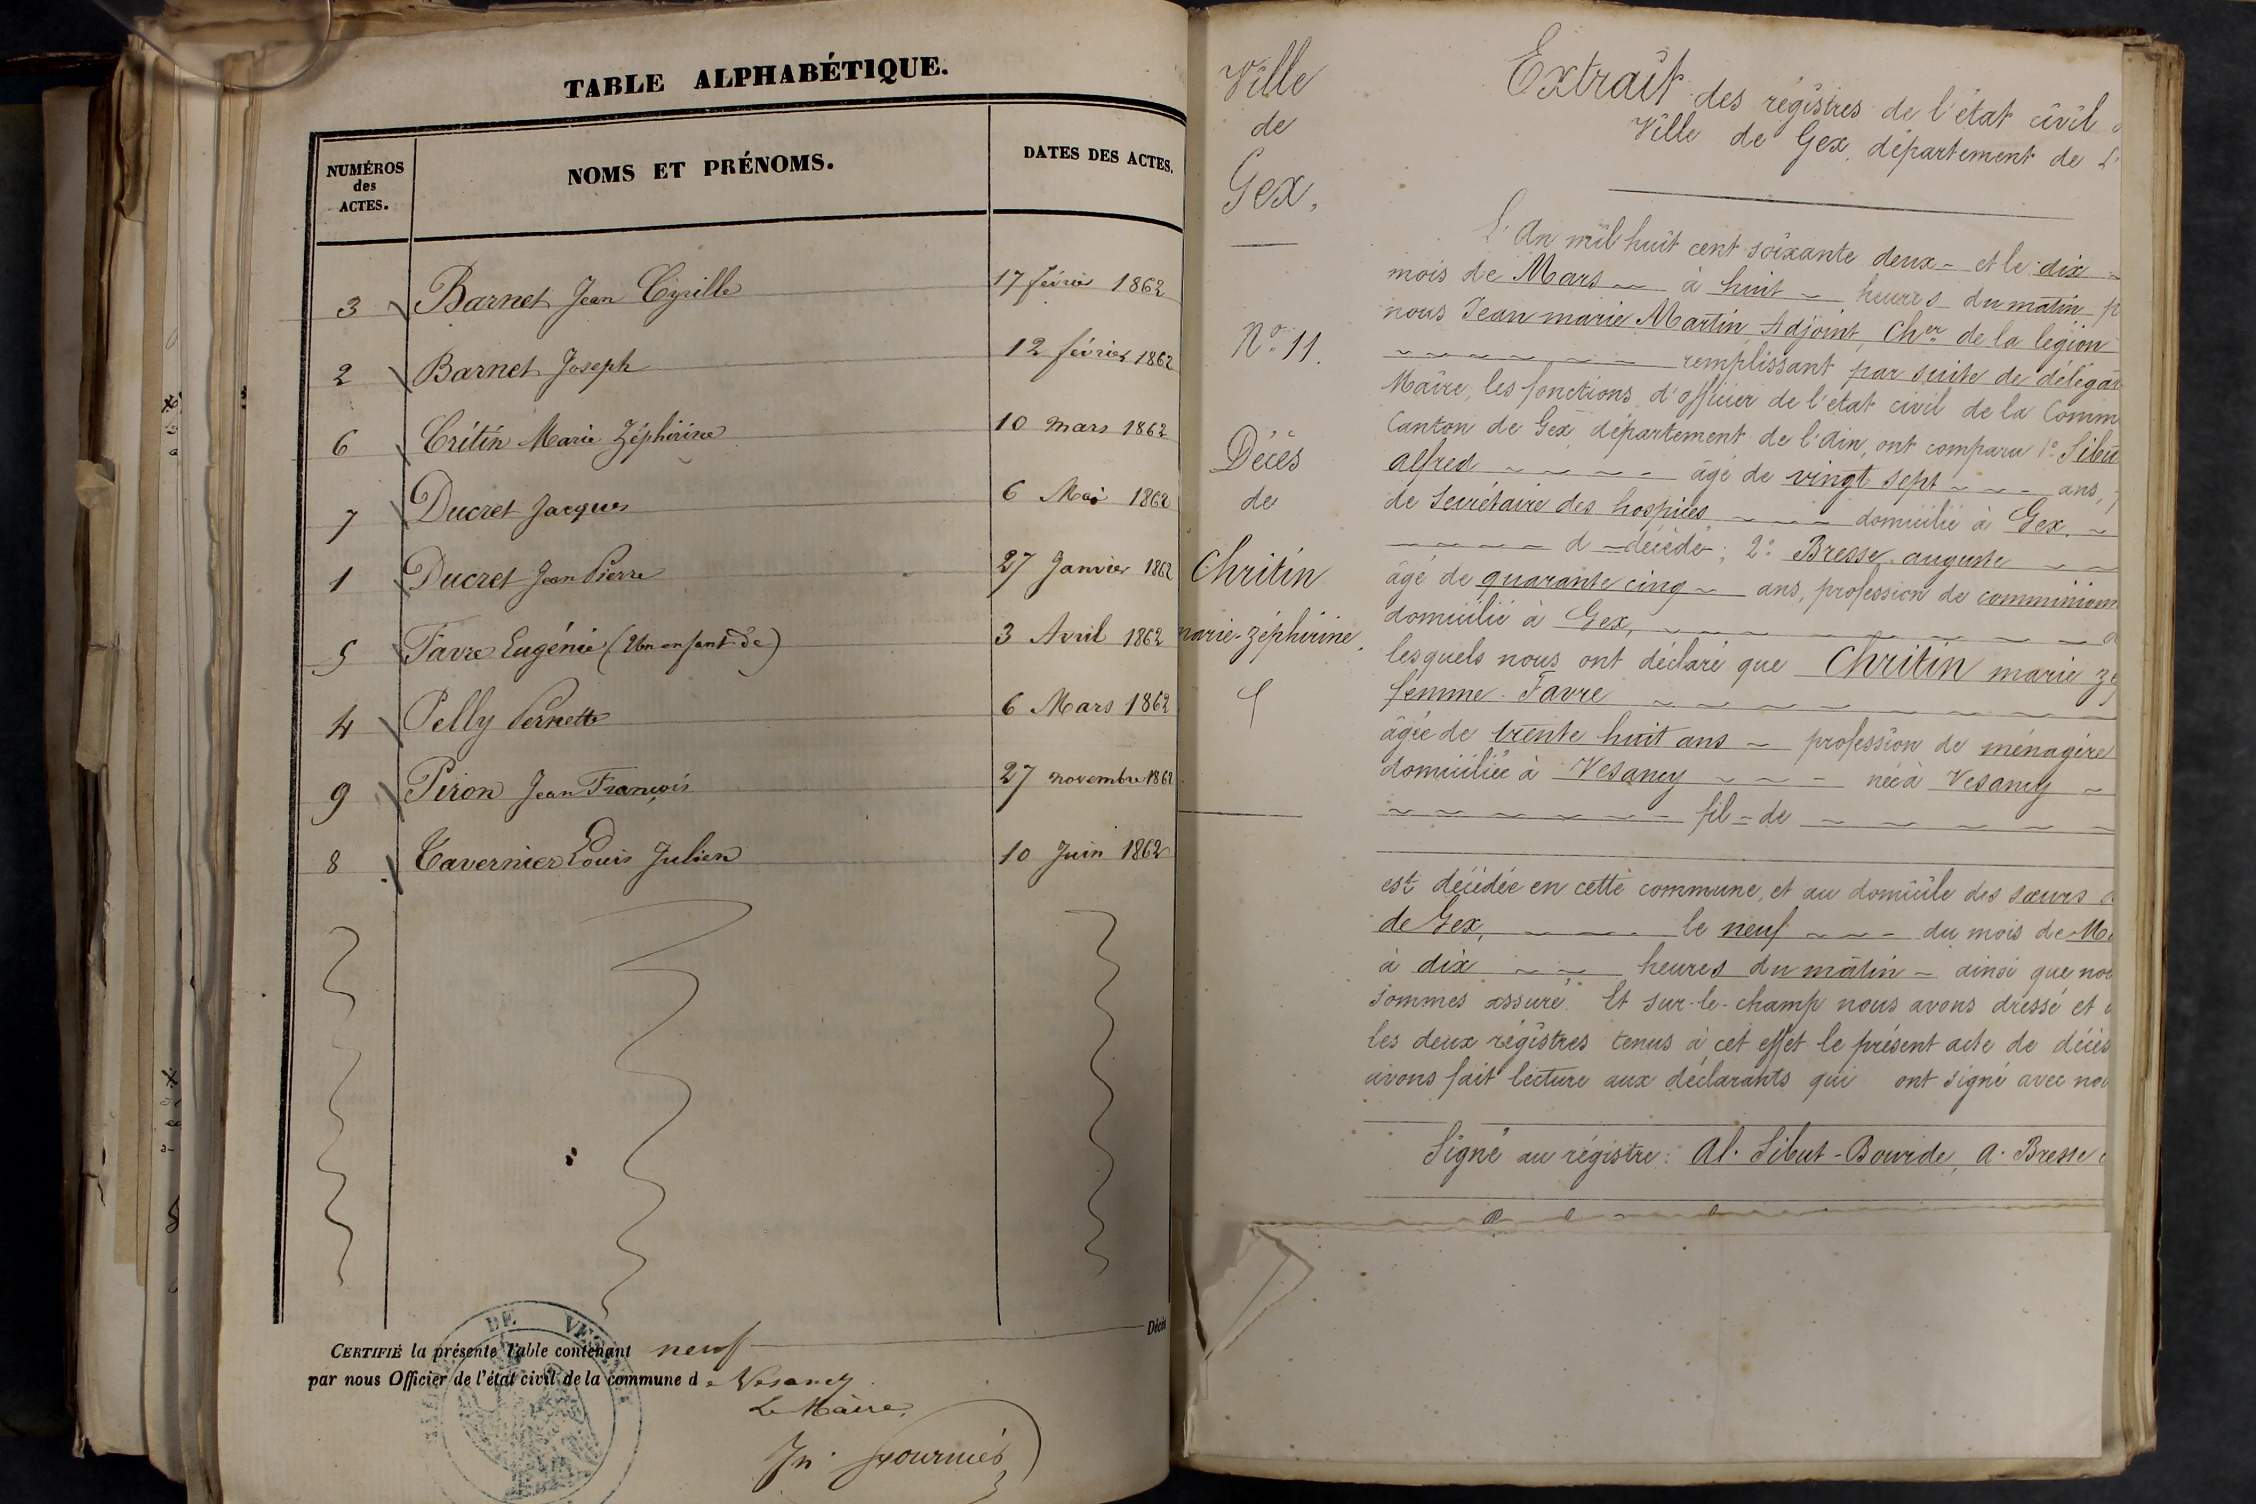 TABLE ALPHABÉTIQUE.
NUMÉROS des ACTES. NOMS ET PRÉNOMS. DATES DES ACTES.
3 Barnet Jean Cyrille 17 février 1862
2 Barnet Joseph 12 février 1862
6 Critin Marie Zéphirine 10 mars 1862
7 Ducret Jacques 6 Mai 1862
1 Ducret Jean Pierre 27 Janvier 1862
5 Favre Eugénie (Un enfant de) 3 Avril 1862
4 Pelly Pernette 6 Mars 1862
9 Piron Jean François 27 novembre 1862
8 Tavernier Louis Julien 10 Juin 1862
CERTIFIÉ la présente Table contenant neuf Décès
par nous Officier de l'état civil de la commune de Vesancy
Le Maire,
Fournier
DE VES
Ville
de
Gex,
N° 11.
Décès
de
Chritin
marie-zéphirine.
Extrait des régistres de l'état civil
Ville de Gex, département de L'
L'An mil huit cent soixante deux et le dix
mois de Mars à huit heures du matin p
nous Jean marie Martin, Adjoint, Cher de la légion
remplissant par suite de délégat
Maire, les fonctions d'officier de l'état civil de la Comm
Canton de Gex, département de l'Ain, ont comparu 1° Sibu
alfred âgé de vingt sept ans,
de Secrétaire des hospices domicilié à Gex,
d décédé; 2° Bresse auguste
âgé de quarante cinq ans, profession de commission
domicilié à Gex,
lesquels nous ont déclaré que Chritin marie zé
femme Favre
âgée de trente huit ans profession de ménagère
domiciliée à Vesancy née à Vesancy
fil de
est décédée en cette commune, et au domicile des sœurs
de Gex, le neuf du mois de Ma
à dix heures du matin ainsi que nou
sommes assuré. Et sur-le-champ nous avons dressé et
les deux régistres tenus à cet effet le présent acte de décès
avons fait lecture aux déclarants qui ont signé avec nou
Signé au régistre: Al. Sibut-Bourde, A. Bresse